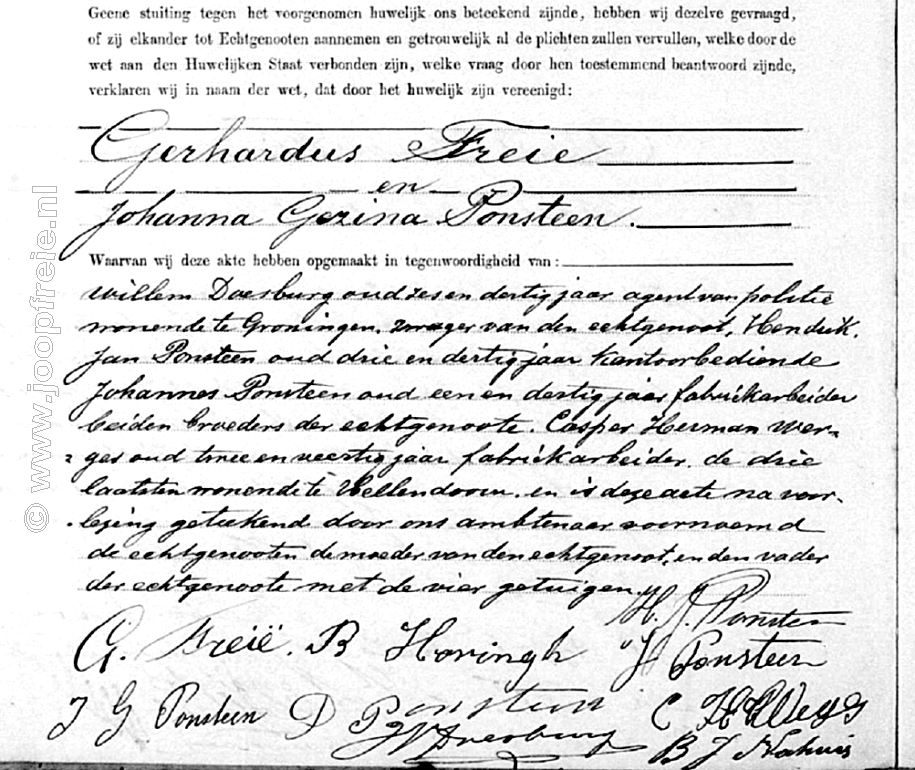 Geene stuiting tegen het voorgenomen huwelijk ons beteekend zijnde, hebben wij dezelve gevraagd,
of zij elkander tot Echtgenooten aannemen en getrouwelijk al de plichten zullen vervullen, welke door de
wet aan den Huwelijken Staat verbonden zijn, welke vraag door hen toestemmend beantwoord zijnde,
verklaren wij in naam der wet, dat door het huwelijk zijn vereenigd:
Gerhardus Freie
en
Johanna Gezina Ponsteen.
Waarvan wij deze akte hebben opgemaakt in tegenwoordigheid van:
Willem Doesburg oud zes en dertig jaar agent van politie
wonende te Groningen, zwager van den echtgenoot, Hendrik
Jan Ponsteen oud drie en dertig jaar kantoorbediende
Johannes Ponsteen oud een en dertig jaar fabriekarbeider
beiden broeders der echtgenoote. Casper Herman Wer-
ges oud twee en veertig jaar fabriekarbeider, de drie
laatsten wonende te Hellendoorn. en is deze acte na voor-
lezing geteekend door ons ambtenaar voornoemd
de echtgenooten de moeder van den echtgenoot, en den vader
der echtgenoote met de vier getuigen.
H. J. Ponsteen
G. Freië. B Horingh J Ponsteen
J G Ponsteen D Ponsteen C H Werges
W Doesburg B J Nahuis
© www.joopfreie.nl